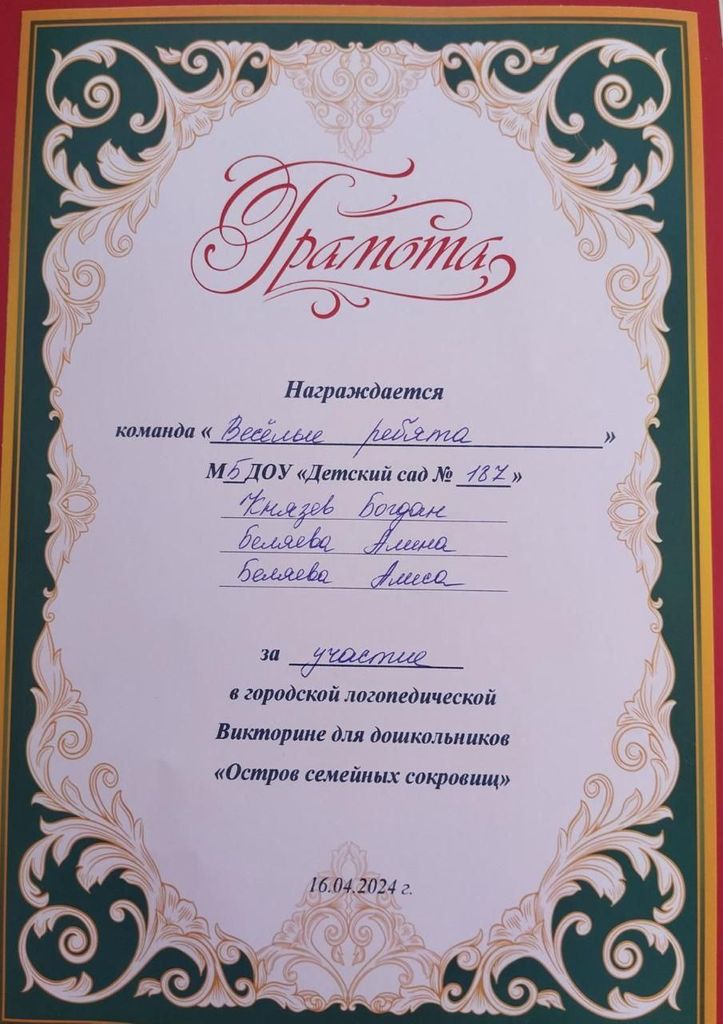 Грамота
Награждается
команда « Весёлые ребята »
МБДОУ «Детский сад № 187»
Князев Богдан
Беляева Алина
Беляева Алиса
за участие
в городской логопедической
Викторине для дошкольников
«Остров семейных сокровищ»
16.04.2024 г.